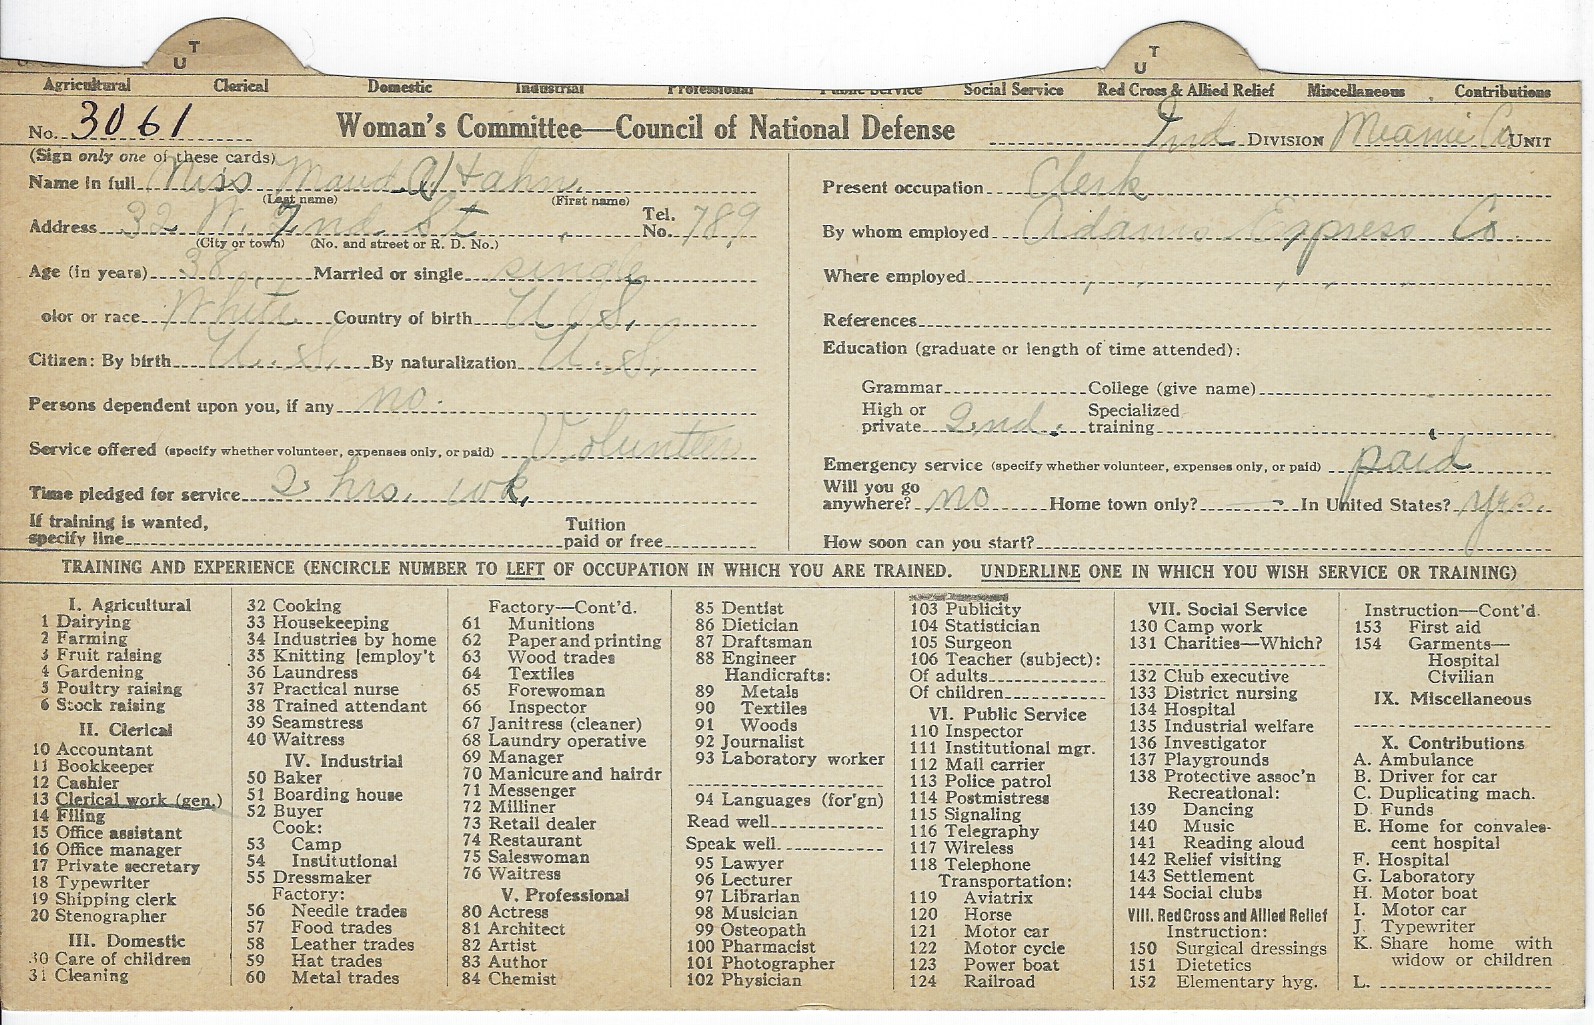 T U T U
Agricultural Clerical Domestic Industrial Professional Public Service Social Service Red Cross & Allied Relief Miscellaneous Contributions
No. 3061 Woman's Committee—Council of National Defense Ind DIVISION Miami Co UNIT
(Sign only one of these cards)
Name in full Miss Maud A Hahn
(Last name) (First name)
Address 32 W. 2nd St Tel. No. 789
(City or town) (No. and street or R. D. No.)
Age (in years) 38 Married or single single
olor or race White Country of birth U. S.
Citizen: By birth U. S. By naturalization U. S.
Persons dependent upon you, if any no.
Service offered (specify whether volunteer, expenses only, or paid) Volunteer
Time pledged for service 2 hrs. wk.
If training is wanted, specify line Tuition paid or free
Present occupation Clerk
By whom employed Adams Express Co.
Where employed " " " "
References
Education (graduate or length of time attended):
Grammar College (give name)
High or private 2nd. Specialized training
Emergency service (specify whether volunteer, expenses only, or paid) paid
Will you go anywhere? no Home town only? — In United States? yes.
How soon can you start?
TRAINING AND EXPERIENCE (ENCIRCLE NUMBER TO LEFT OF OCCUPATION IN WHICH YOU ARE TRAINED. UNDERLINE ONE IN WHICH YOU WISH SERVICE OR TRAINING)
I. Agricultural
1 Dairying
2 Farming
3 Fruit raising
4 Gardening
5 Poultry raising
6 Stock raising
II. Clerical
10 Accountant
11 Bookkeeper
12 Cashier
13 Clerical work (gen.)
14 Filing
15 Office assistant
16 Office manager
17 Private secretary
18 Typewriter
19 Shipping clerk
20 Stenographer
III. Domestic
30 Care of children
31 Cleaning
32 Cooking
33 Housekeeping
34 Industries by home
35 Knitting [employ't
36 Laundress
37 Practical nurse
38 Trained attendant
39 Seamstress
40 Waitress
IV. Industrial
50 Baker
51 Boarding house
52 Buyer
Cook:
53 Camp
54 Institutional
55 Dressmaker
Factory:
56 Needle trades
57 Food trades
58 Leather trades
59 Hat trades
60 Metal trades
Factory—Cont'd.
61 Munitions
62 Paper and printing
63 Wood trades
64 Textiles
65 Forewoman
66 Inspector
67 Janitress (cleaner)
68 Laundry operative
69 Manager
70 Manicure and hairdr
71 Messenger
72 Milliner
73 Retail dealer
74 Restaurant
75 Saleswoman
76 Waitress
V. Professional
80 Actress
81 Architect
82 Artist
83 Author
84 Chemist
85 Dentist
86 Dietician
87 Draftsman
88 Engineer
Handicrafts:
89 Metals
90 Textiles
91 Woods
92 Journalist
93 Laboratory worker
94 Languages (for'gn)
Read well
Speak well
95 Lawyer
96 Lecturer
97 Librarian
98 Musician
99 Osteopath
100 Pharmacist
101 Photographer
102 Physician
103 Publicity
104 Statistician
105 Surgeon
106 Teacher (subject):
Of adults
Of children
VI. Public Service
110 Inspector
111 Institutional mgr.
112 Mail carrier
113 Police patrol
114 Postmistress
115 Signaling
116 Telegraphy
117 Wireless
118 Telephone
Transportation:
119 Aviatrix
120 Horse
121 Motor car
122 Motor cycle
123 Power boat
124 Railroad
VII. Social Service
130 Camp work
131 Charities—Which?
132 Club executive
133 District nursing
134 Hospital
135 Industrial welfare
136 Investigator
137 Playgrounds
138 Protective assoc'n
Recreational:
139 Dancing
140 Music
141 Reading aloud
142 Relief visiting
143 Settlement
144 Social clubs
VIII. Red Cross and Allied Relief
Instruction:
150 Surgical dressings
151 Dietetics
152 Elementary hyg.
Instruction—Cont'd.
153 First aid
154 Garments—
Hospital
Civilian
IX. Miscellaneous
X. Contributions
A. Ambulance
B. Driver for car
C. Duplicating mach.
D. Funds
E. Home for convales-
cent hospital
F. Hospital
G. Laboratory
H. Motor boat
I. Motor car
J. Typewriter
K. Share home with
widow or children
L.